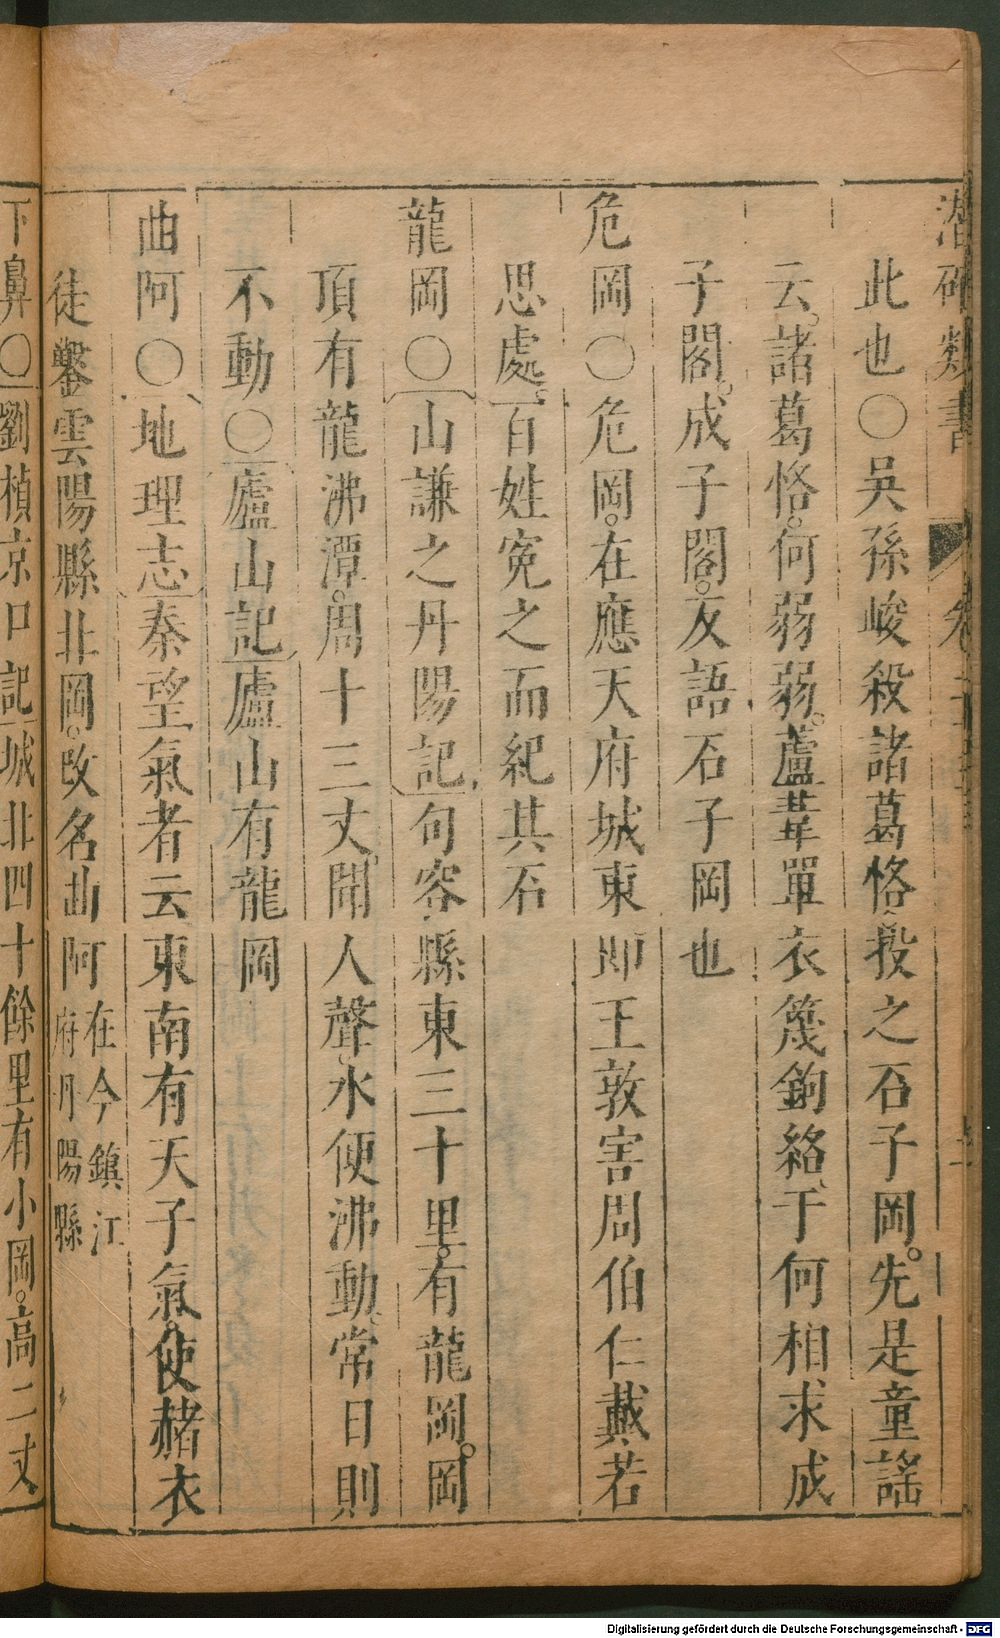 潛確類書 卷二十
此也〇吳孫峻殺諸葛恪投之石子岡。先是童謠
云。諸葛恪。何弱弱。蘆葦單衣篾鉤絡、于何相求成
子閣。成子閣。反語石子岡也
危岡〇危岡。在應天府城東卽王敦害周伯仁戴若
思處。百姓寃之而紀其石
龍岡〇山謙之丹陽記句容縣東三十里。有龍岡。岡
頂有龍沸潭。周十三丈。聞人聲。水便沸動。常日則
不動〇廬山記廬山有龍岡
曲阿〇地理志秦望氣者云東南有天子氣。使赭衣
徒鑿雲陽縣北岡。改名曲阿在今鎮江府丹陽縣
下鼻〇劉楨京口記城北四十餘里有小岡。高二丈
Digitalisierung gefördert durch die Deutsche Forschungsgemeinschaft - DFG